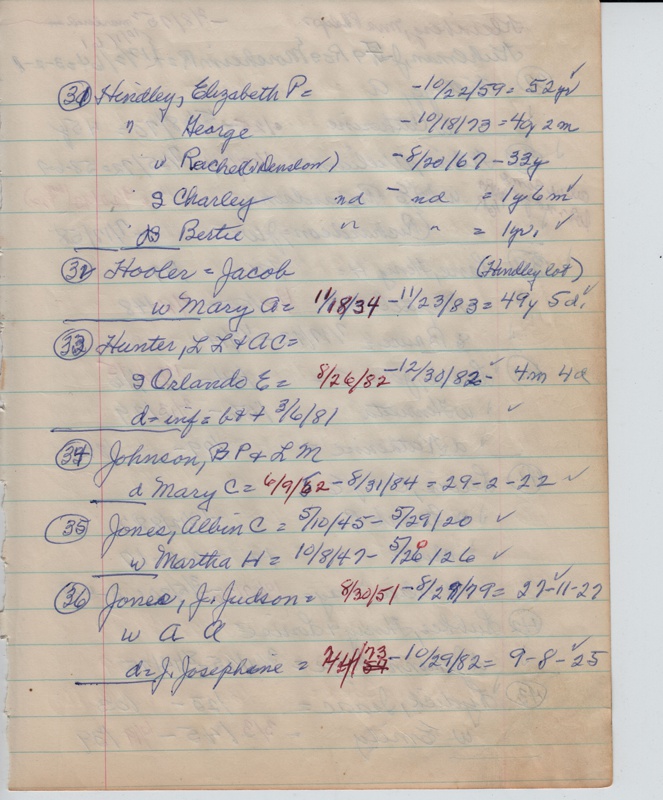 (31) Hindley, Elizabeth P = -10/22/59 = 52yr ✓
" George -10/18/73 = 40y 2m
w Rachel (Denslow) -8/20/67 - 33y
s Charley nd - nd = 1y 6m ✓
s Bertie " " = 1yr. ✓
(32) Hooler = Jacob (Hindley lot)
w Mary A = 11/18/34 - 11/23/83 = 49y 5d. ✓
(33) Hunter, L L & A C =
s Orlando E = 8/26/82 - 12/30/82 - 4m 4d
d = inf = b & + 3/6/81 ✓
(34) Johnson, B P & L M
d Mary C = 6/9/52 - 8/31/84 = 29-2-22 ✓
(35) Jones, Albin C = 5/10/45 - 5/29/20 ✓
w Martha H = 10/8/47 - 5/20/26 ✓
(36) Jones, J. Judson = 8/30/51 - 8/27/79 = 27-11-27 ✓
w A A
d = J. Josephine = 73 - 10/29/82 = 9-8-25 ✓